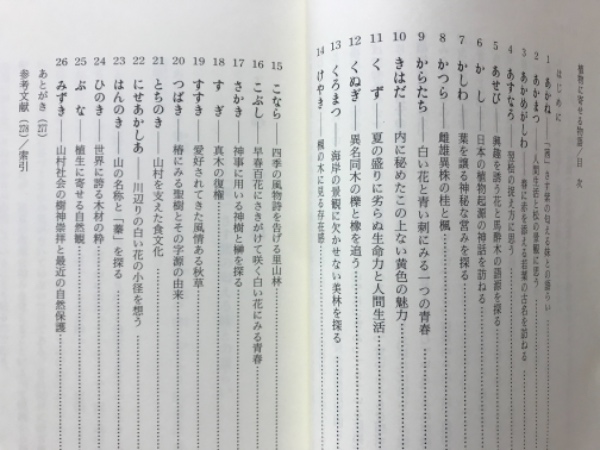 植物に寄せる物語/目 次
はじめに
1 あかね――「茜」さす紫の匂える妹との語らい
2 あかまつ――人間生活と松の景観に思う
3 あかめがしわ――春に赤を添える若葉の古名を訪ねる
4 あすなろ――翌桧の捉え方に思う
5 あせび――興趣を誘う花と馬酔木の語源を探る
6 か し――日本の植物起源の神話を訪ねる
7 かしわ――葉を譲る神秘な営みを探る
8 かつら――雌雄異株の桂と楓
9 からたち――白い花と青い刺にみる一つの青春
10 きはだ――内に秘めたこの上ない黄色の魅力
11 く ず――夏の盛りに劣らぬ生命力と人間生活
12 くぬぎ――異名同木の櫟と橡を追う
13 くろまつ――海岸の景観に欠かせない美林を探る
14 けやき――槻の木に見る存在感
15 こなら――四季の風物詩を告げる里山林
16 こぶし――早春百花にさきがけて咲く白い花にみる青春
17 さかき――神事に用いる神樹と榊を探る
18 す ぎ――真木の復権
19 すすき――愛好されてきた風情ある秋草
20 つばき――椿にみる聖樹とその字源の由来
21 とちのき――山村を支えた食文化
22 にせあかしあ――川辺りの白い花の小径を想う
23 はんのき――山の名称と「藜」を探る
24 ひのき――世界に誇る木材の粋
25 ぶ な――植生に寄せる自然観
26 みずき――山村社会の樹神崇拝と最近の自然保護
あとがき(277)
参考文献(279)/索引